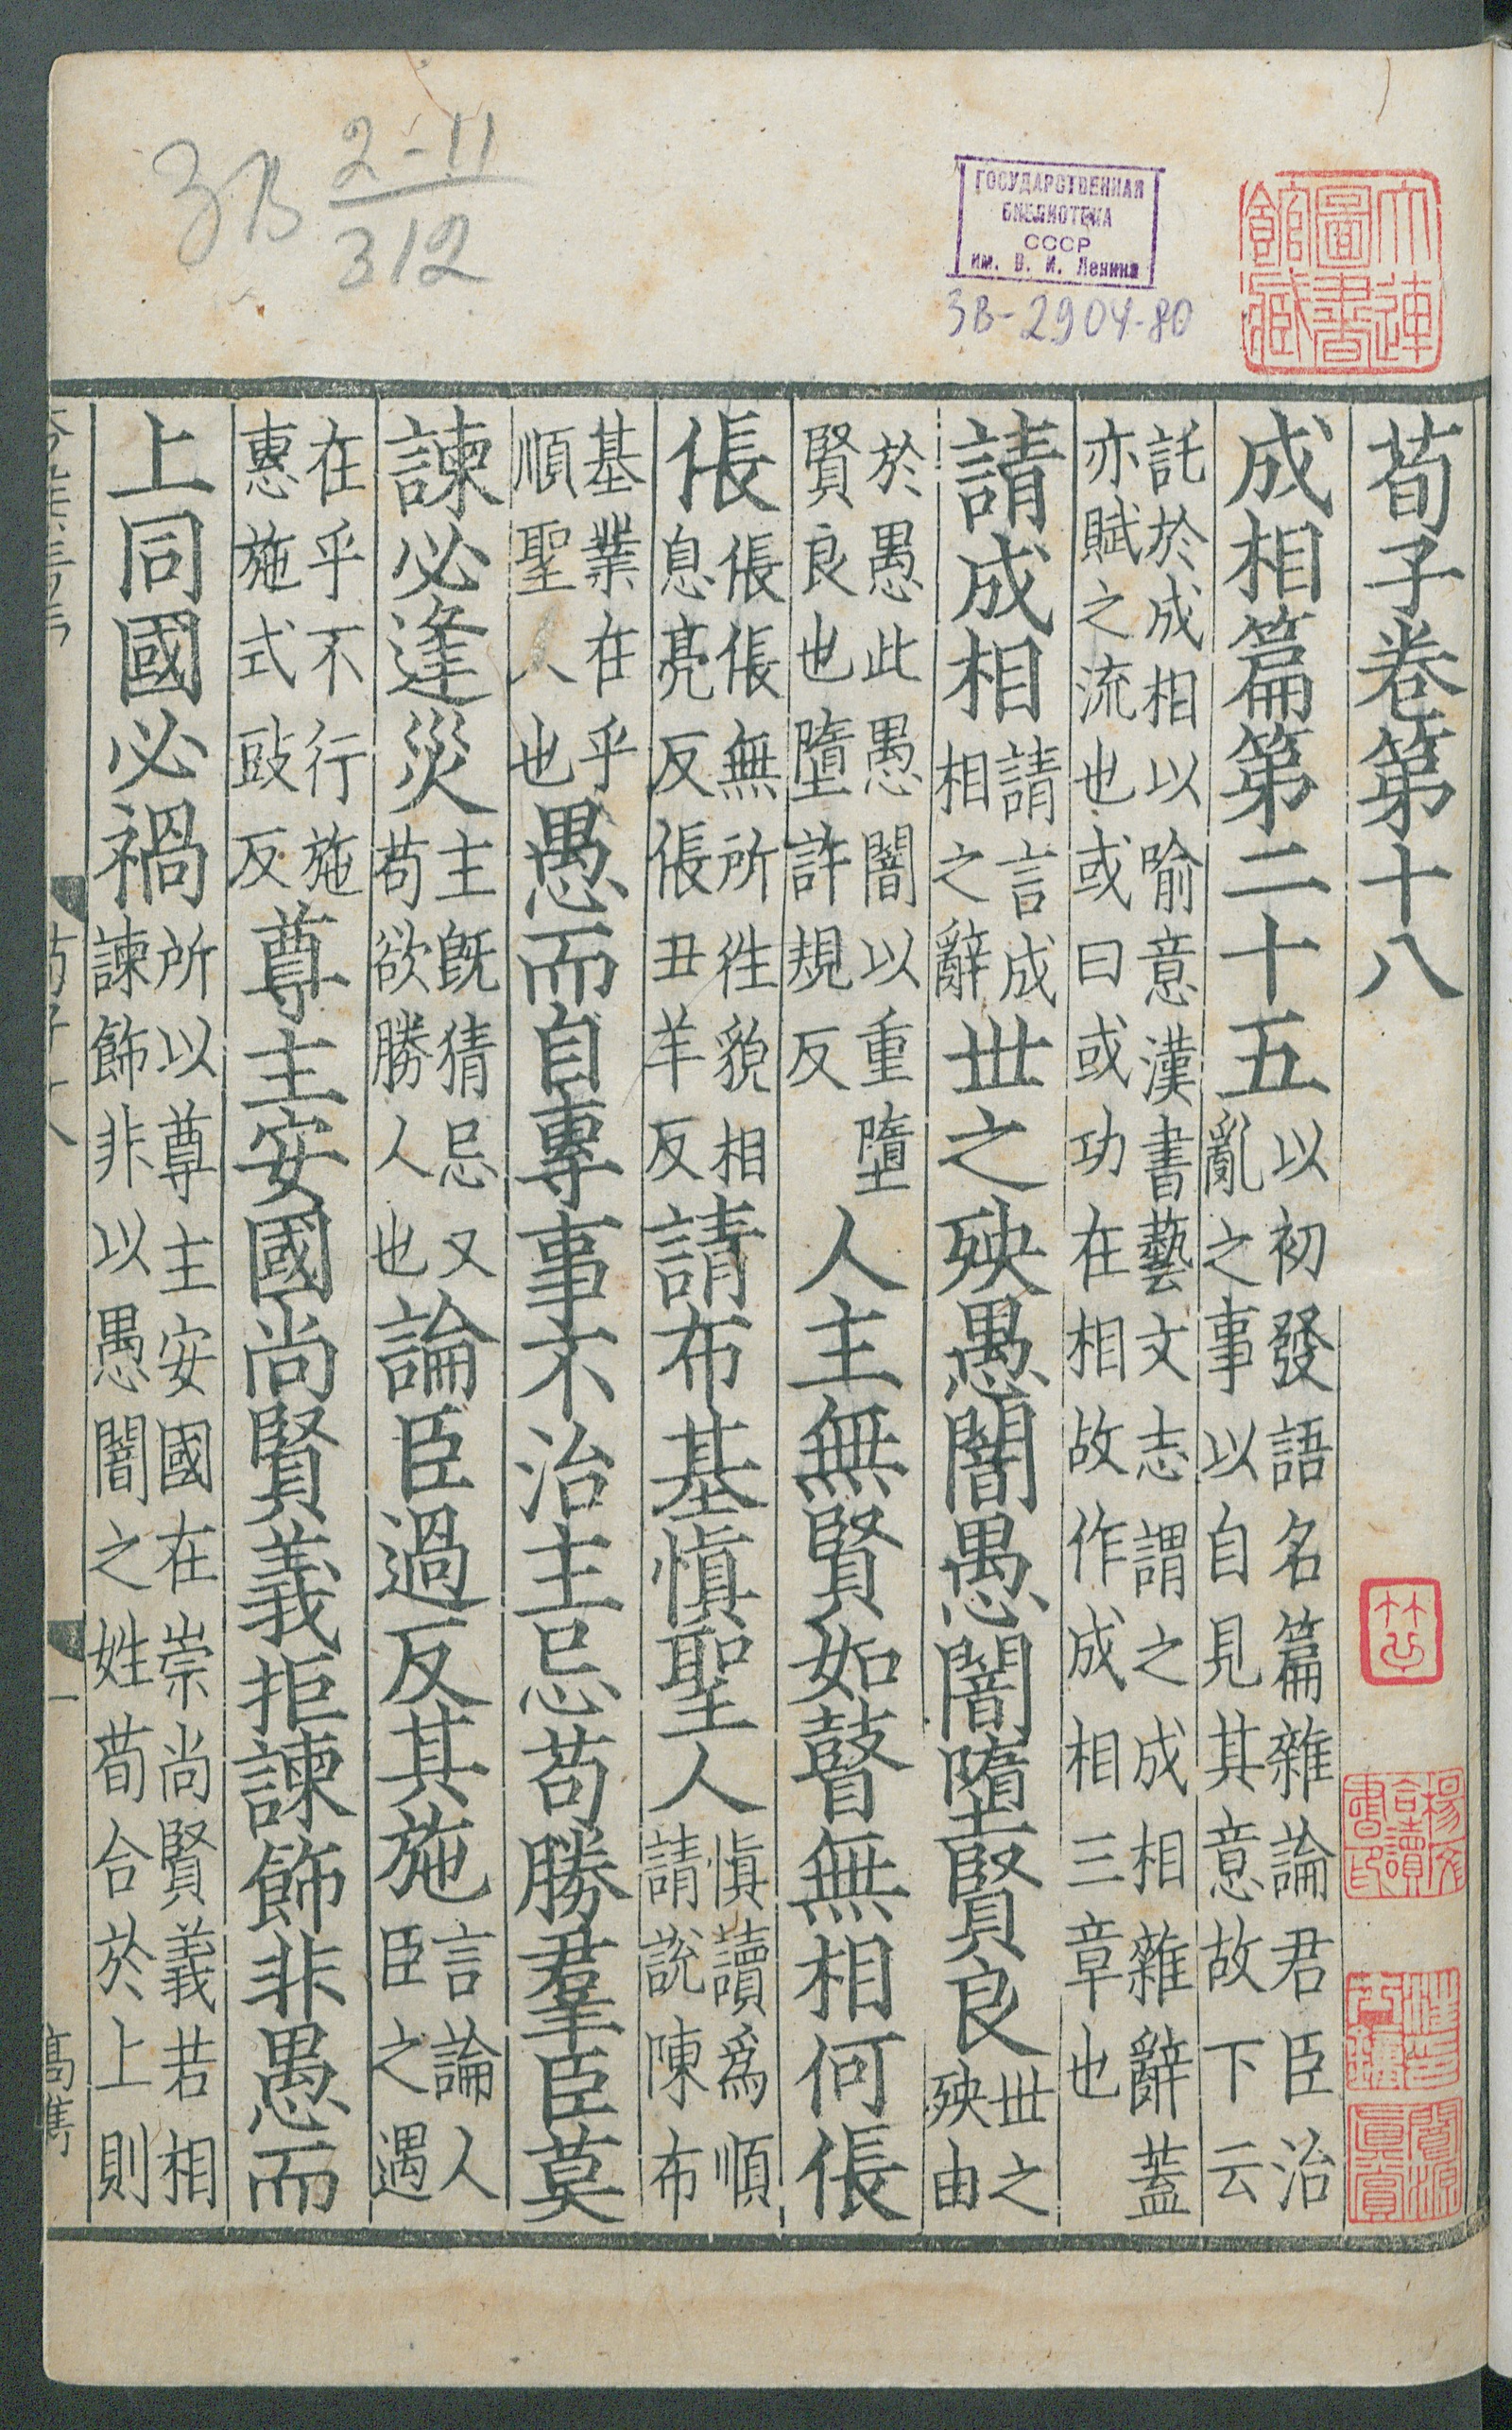 荀子卷第十八
成相篇第二十五
以初發語名篇雜論君臣治
亂之事以自見其意故下云
託於成相以喻意漢書藝文志謂之成相雜辭蓋
亦賦之流也或曰或功在相故作成相三章也
請成相
請言成
相之辭
世之殃愚闇愚闇墮賢良
世之
殃由
於愚此愚愚闇以重墮
賢良也墮許規反
人主無賢如瞽無相何倀
倀
倀倀無所往貌相
息亮反倀丑羊反
請布基慎聖人
慎讀爲順
請說陳布
基業在乎
順聖人也
愚而自專事不治主忌苟勝羣臣莫
諫必逢災
主既猜忌又
苟欲勝人也
論臣過反其施
言論人
臣之過
在乎不行施
惠施式豉反
尊主安國尚賢義拒諫飾非愚而
上同國必禍
所以尊主安國在崇尚賢義若相
諫飾非以愚闇之姓苟合於上則
荀子十八
一
高雋
大連
圖書
館藏
ГОСУДАРСТВЕННАЯ
БИБЛИОТЕКА
СССР
им. В. И. Ленина
3В-2904-80
3В 2-11
312